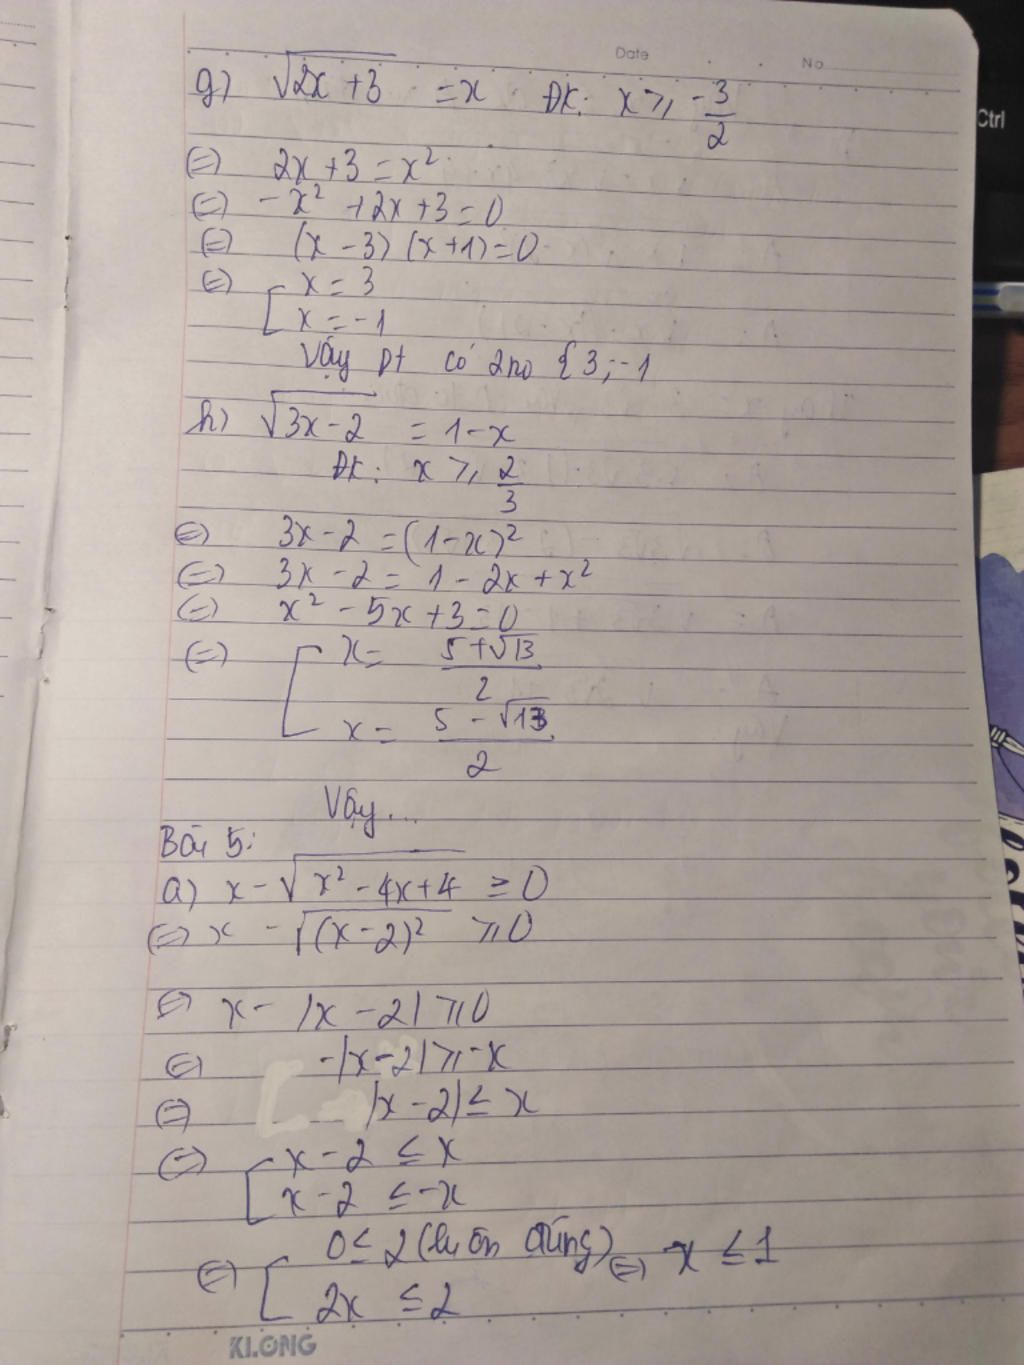 Date No
Ctrl
g) √(2x+3) = x ĐK: x ≥ -3/2
(=) 2x + 3 = x²
(=) -x² + 2x + 3 = 0
(=) (x - 3) (x + 1) = 0
(=) [ x = 3
x = -1
Vậy pt có 2no {3; -1
h) √(3x-2) = 1 - x
ĐK: x ≥ 2/3
(=) 3x - 2 = (1 - x)²
(=) 3x - 2 = 1 - 2x + x²
(=) x² - 5x + 3 = 0
(=) [ x = (5 + √13)/2
x = (5 - √13)/2
Vậy...
Bài 5:
a) x - √(x² - 4x + 4) ≥ 0
(=) x - √((x - 2)²) ≥ 0
(=) x - |x - 2| ≥ 0
(=) -|x - 2| ≥ -x
(=) |x - 2| ≤ x
(=) [ x - 2 ≤ x
x - 2 ≤ -x
(=) [ 0 ≤ 2 (luôn đúng) (=) x ≤ 1
2x ≤ 2
KLONG